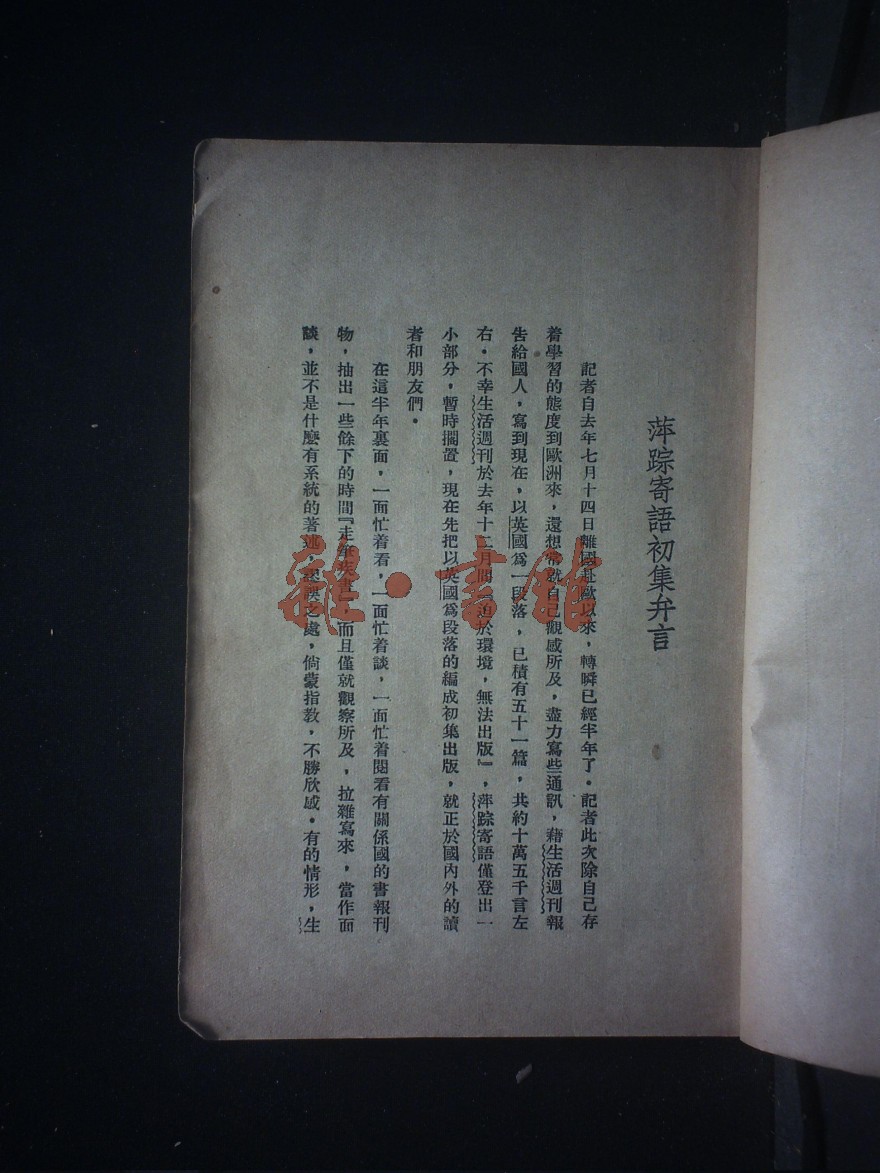 萍踪寄語初集弁言
記者自去年七月十四日離國赴歐以來，轉瞬已經半年了。記者此次除自己存
着學習的態度到歐洲來，還想常就自己觀感所及，盡力寫些通訊，藉生活週刊報
告給國人，寫到現在，以英國爲一段落，已積有五十一篇，共約十萬五千言左
右。不幸生活週刊於去年十二月間『迫於環境，無法出版』，萍踪寄語僅登出一
小部分，暫時擱置，現在先把以英國爲段落的編成初集出版，就正於國內外的讀
者和朋友們。
在這半年裏面，一面忙着看，一面忙着談，一面忙着閱看有關係國的書報刊
物，抽出一些餘下的時間『走筆疾書』，而且僅就觀察所及，拉雜寫來，當作面
談，並不是什麼有系統的著述，誤之處，倘蒙指教，不勝欣感。有的情形，生
雜·書館